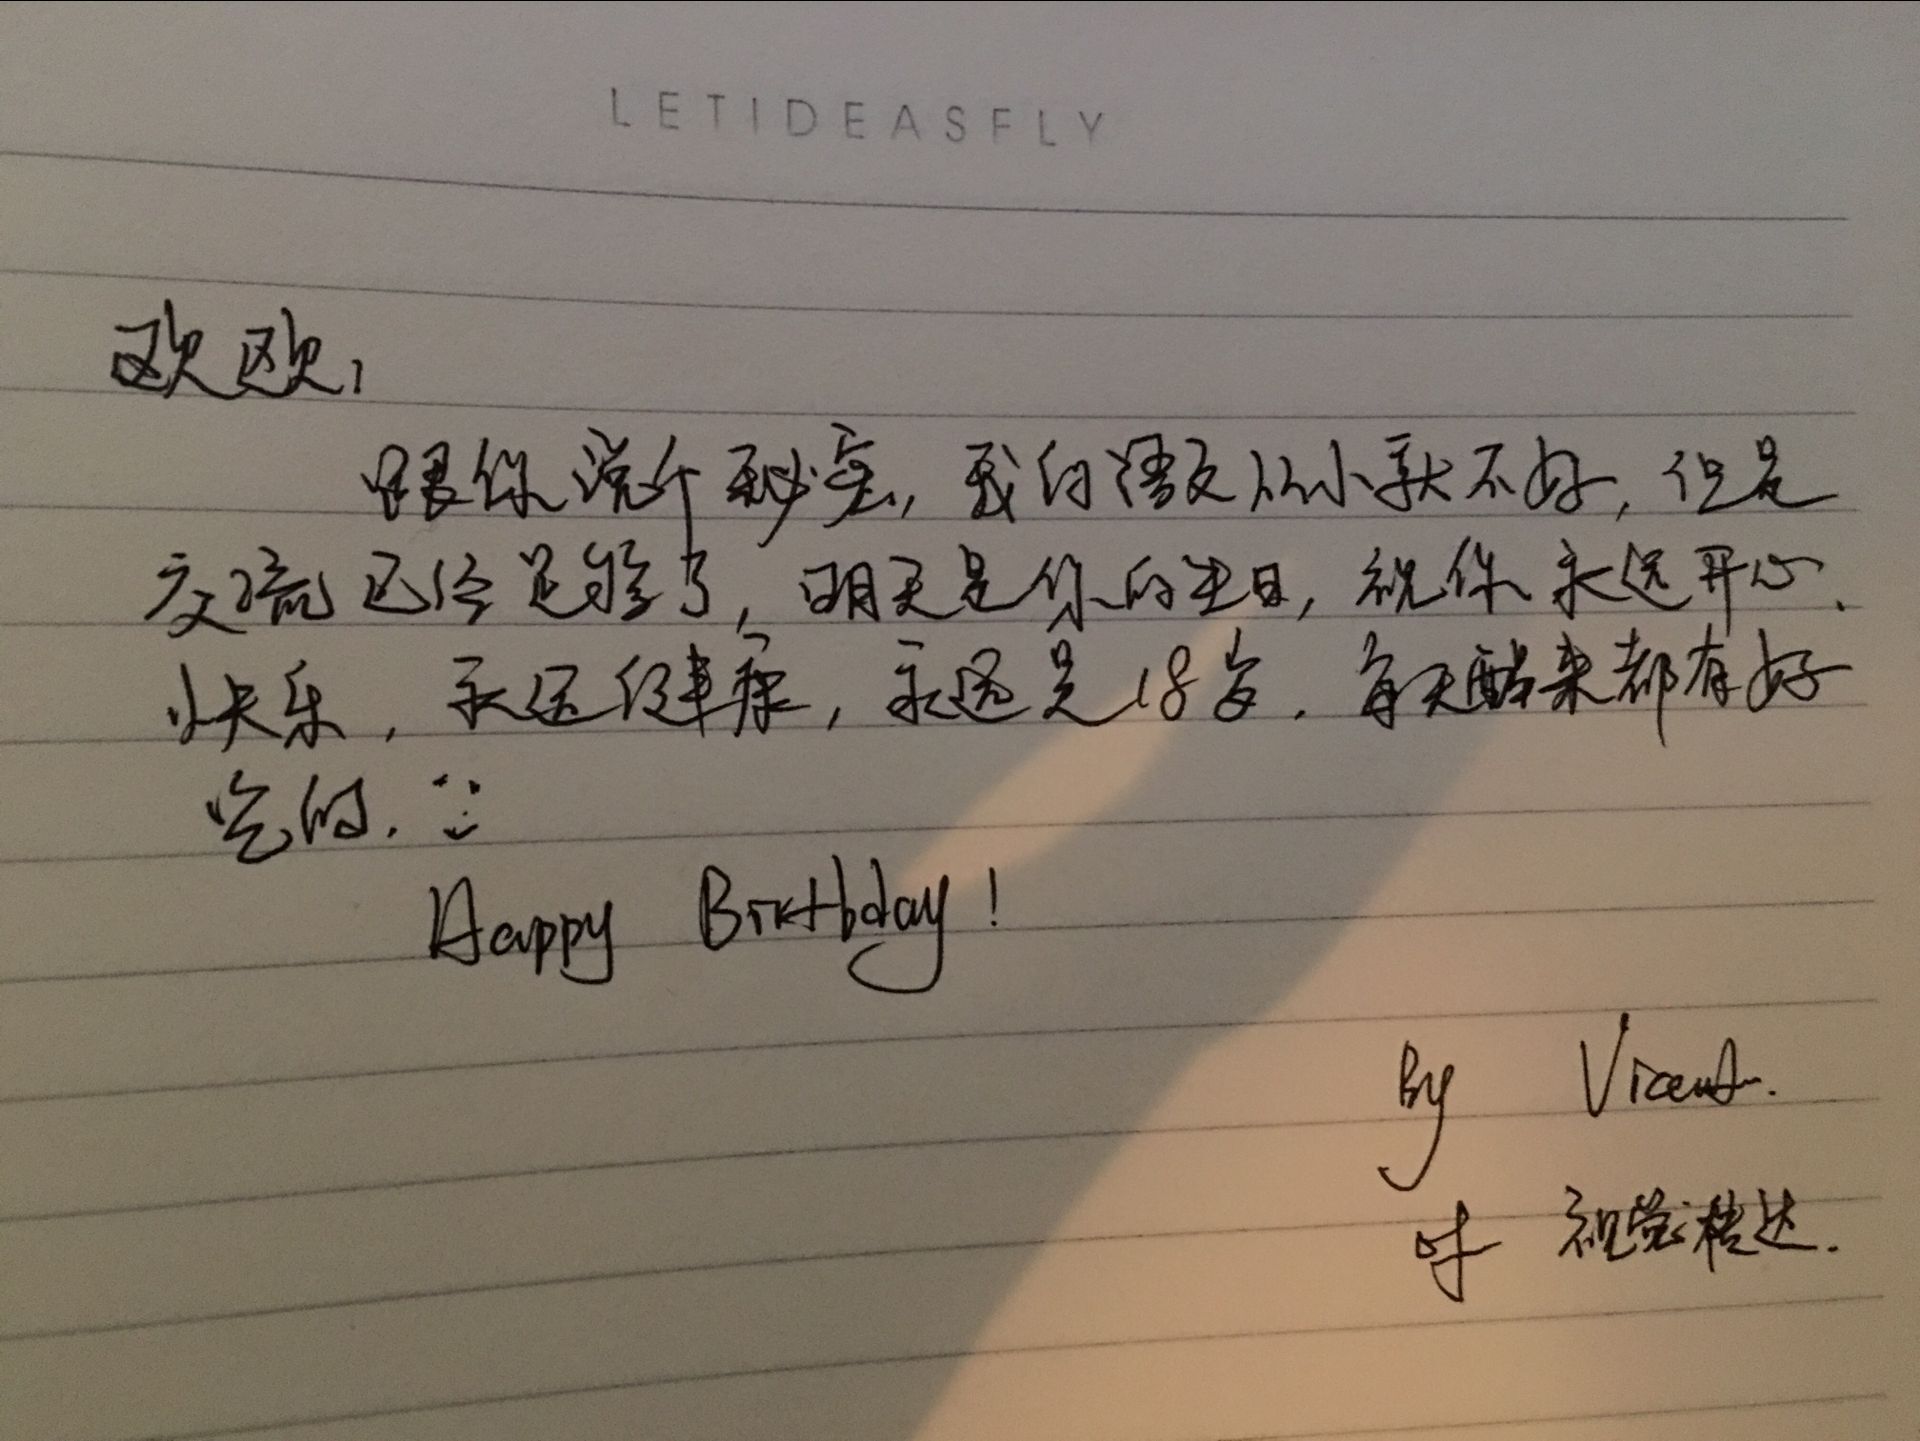 LETIDEASFLY
欧欧,
跟你说个秘密,我的语文从小就不好,但是
交流已经足够了,明天是你的生日,祝你永远开心、
快乐,永远健康,永远是18岁.每天醒来都有好
吃的.
Happy Birthday!
By Vicent.
of 视觉传达.